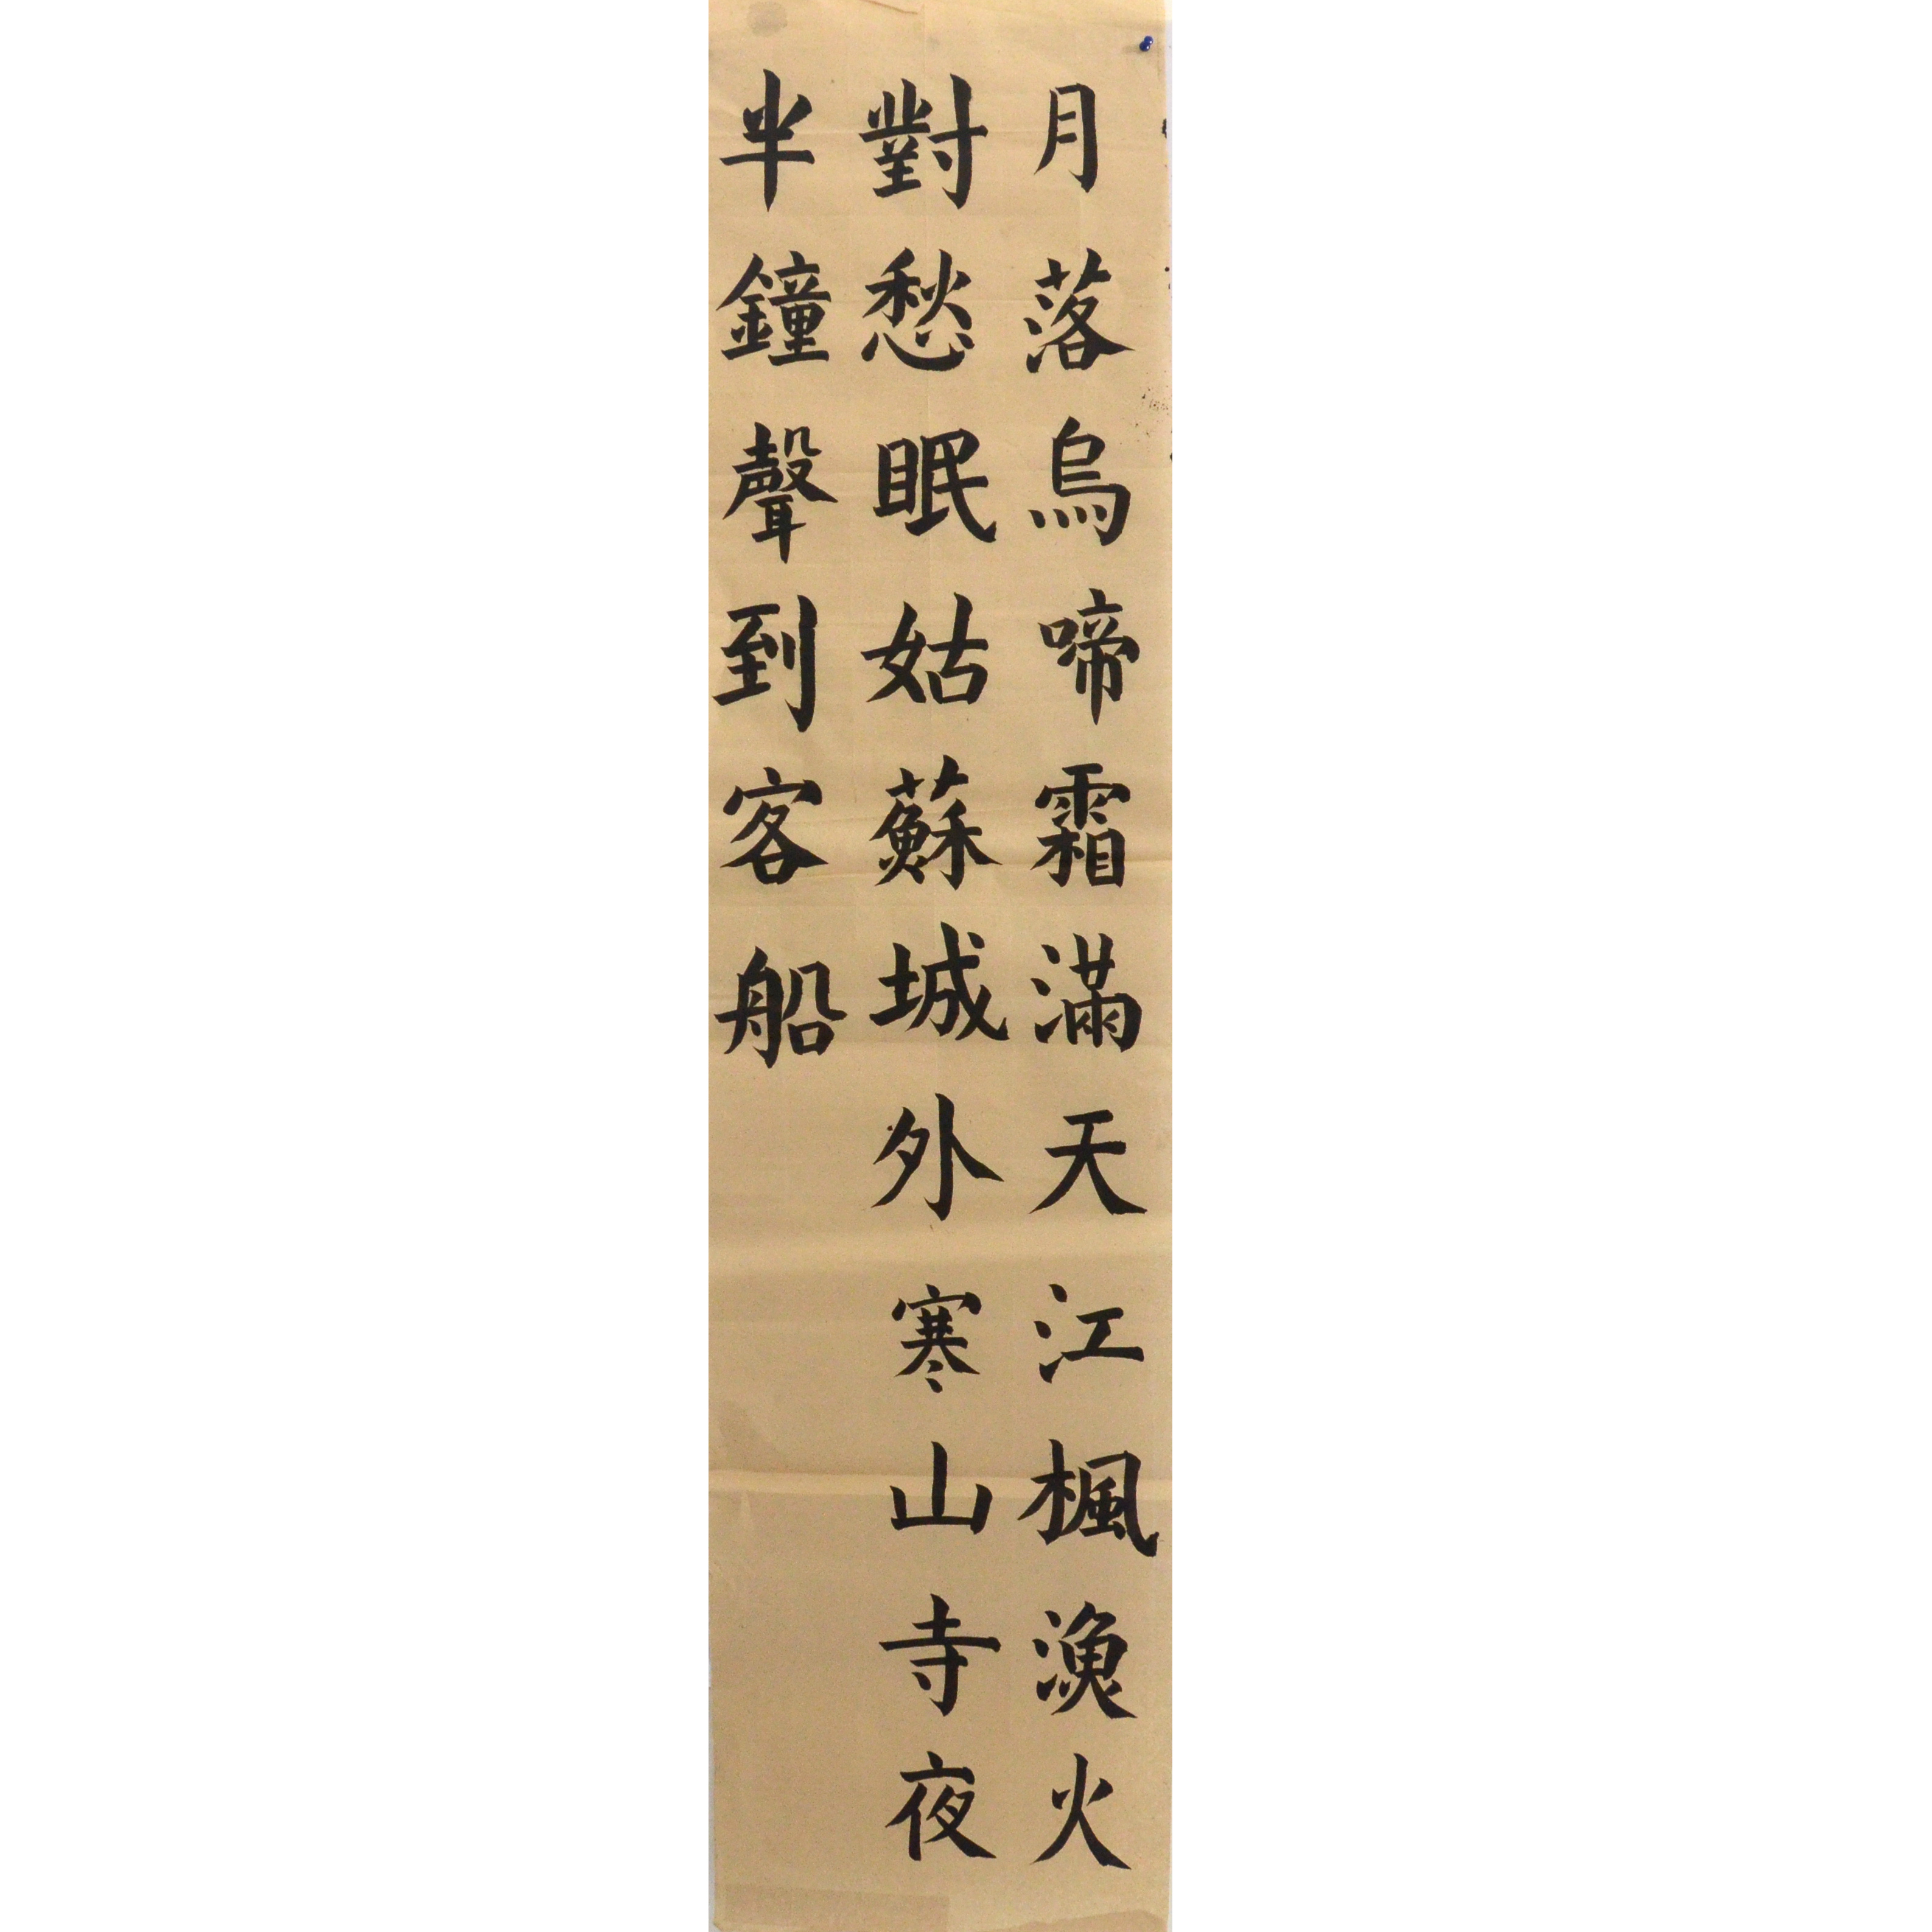 月落烏啼霜滿天江楓漁火
對愁眠姑蘇城外寒山寺夜
半鐘聲到客船